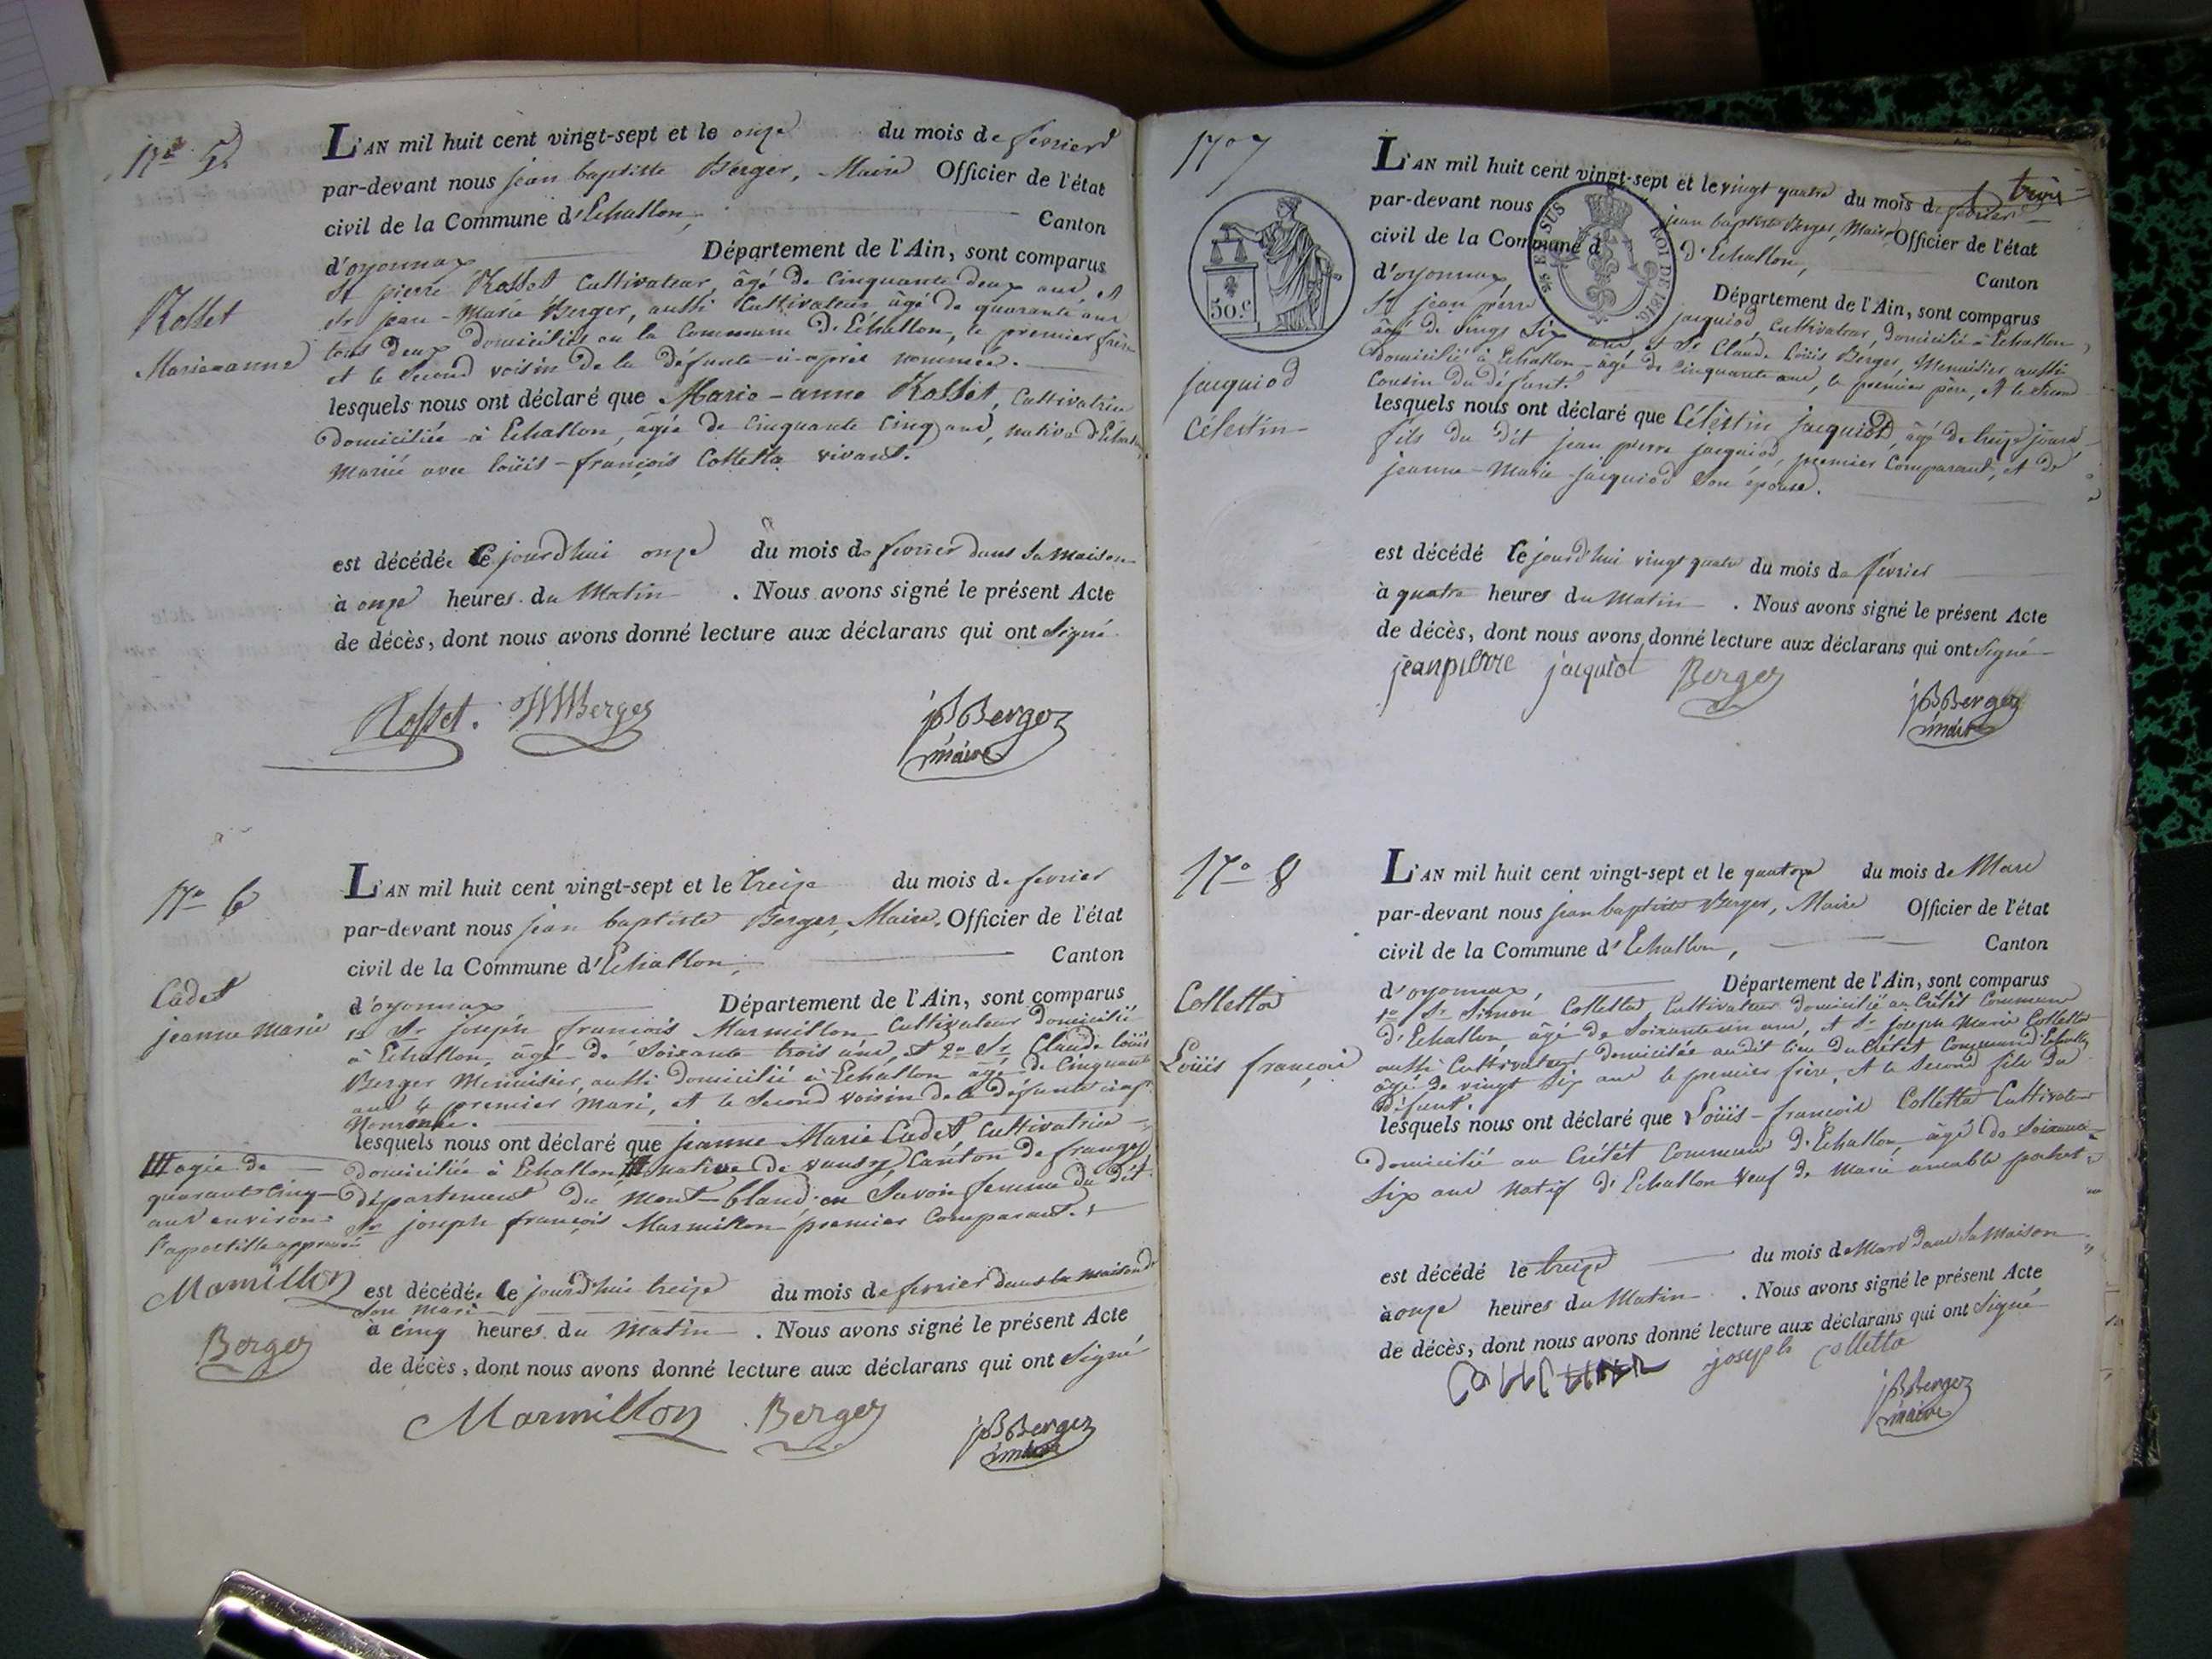 No 5
L'AN mil huit cent vingt-sept et le onze du mois de fevrier
par-devant nous jean baptiste Berger, Maire Officier de l'état
civil de la Commune d'Echallon, Canton
d'oyonnax Département de l'Ain, sont comparus
Sr pierre Rosset Cultivateur, âgé de Cinquante deux ans, et
Sr jean-Marie Berger, aussi Cultivateur âgé de quarante ans
tous deux domiciliés en la Commune d'Echallon, le premier frère
et le Second voisin de la défunte ci-après nommée.
Rosset
Marie anne
lesquels nous ont déclaré que Marie-anne Rosset, Cultivatrice
domiciliée à Echallon, âgée de Cinquante Cinq ans, native d'Echallon
Mariée avec Loüis-françois Colletta vivant.
est décédée Ce jourd'hui onze du mois de fevrier dans Sa Maison
à onze heures du Matin . Nous avons signé le présent Acte
de décès, dont nous avons donné lecture aux déclarans qui ont Signé
Rosset. JMBerger
jBBerger
maire
No 6
L'AN mil huit cent vingt-sept et le treize du mois de fevrier
par-devant nous jean baptiste Berger, Maire, Officier de l'état
civil de la Commune d'Echallon, Canton
d'oyonnax Département de l'Ain, sont comparus
Cadet
jeanne Marie
1o Sr joseph francois Marmillon Cultivateur domicilié
à Echallon, âgé de Soixante trois ans, et 2o Sr Claude Loüis
Berger Menuisier, aussi domicilié à Echallon âgé de Cinquante
ans le premier Mari, et le Second voisin de la défunte
Nommée.
lesquels nous ont déclaré que jeanne Marie Cadet, Cultivatrice
domiciliée à Echallon native de Canton de frangy
département du Mont-blanc en Savoie femme du dit
Sr joseph françois Marmillon premier Comparant.
agée de
quarante Cinq
ans environ
l'apostille approuvée
Marmillon
Berger
est décédée Ce jourd'hui treize du mois de fevrier dans la maison de
Son Mari
à Cinq heures du Matin . Nous avons signé le présent Acte
de décès, dont nous avons donné lecture aux déclarans qui ont Signé
Marmillon Berger
jBBerger
maire
No 7
trois
L'AN mil huit cent vingt-sept et le vingt quatre du mois de fevrier
par-devant nous jean baptiste Berger, Maire Officier de l'état
civil de la Commune d'Echallon, Canton
d'oyonnax, Département de l'Ain, sont comparus
50 c.
ROI DE 1816.
Sr jean pierre jacquiod, Cultivateur, domicilié à Echallon,
âgé de vingt Six ans, et Sr Claude Loüis Berger, Menuisier aussi
domicilié à Echallon âgé de Cinquante ans, le premier père, et le Second
Cousin du défunt.
jacquiod
Célestin
lesquels nous ont déclaré que Célestin jacquiod, âgé de treize jours
fils du dit jean pierre jacquiod, premier Comparant, et de
jeanne-Marie jacquiod Son épouse.
est décédé Ce jourd'hui vingt quatre du mois de fevrier
à quatre heures du Matin . Nous avons signé le présent Acte
de décès, dont nous avons donné lecture aux déclarans qui ont Signé
jeanpierre jacquiot Berger
jBBerger
maire
No 8
L'AN mil huit cent vingt-sept et le quatorze du mois de Mars
par-devant nous jean baptiste Berger, Maire Officier de l'état
civil de la Commune d'Echallon, Canton
d'oyonnax, Département de l'Ain, sont comparus
Colletta
Loüis françois
1o Sr Simon Colletta, Cultivateur domicilié au Crétêt Commune
d'Echallon âgé de Soixante un ans, et Sr joseph Marie Colletta
aussi Cultivateur domicilié audit lieu du Crétêt Commune d'Echallon
âgé de vingt Six ans le premier frère, et le Second fils du
défunt.
lesquels nous ont déclaré que Loüis-françois Colletta Cultivateur
domicilié au Crétêt Commune d'Echallon âgé de Soixante
Six ans Natif d'Echallon Veuf de Marie amable
est décédé le treize du mois de Mars dans Sa Maison
à onze heures du Matin . Nous avons signé le présent Acte
de décès, dont nous avons donné lecture aux déclarans qui ont Signé
joseph colletta
jBBerger
maire